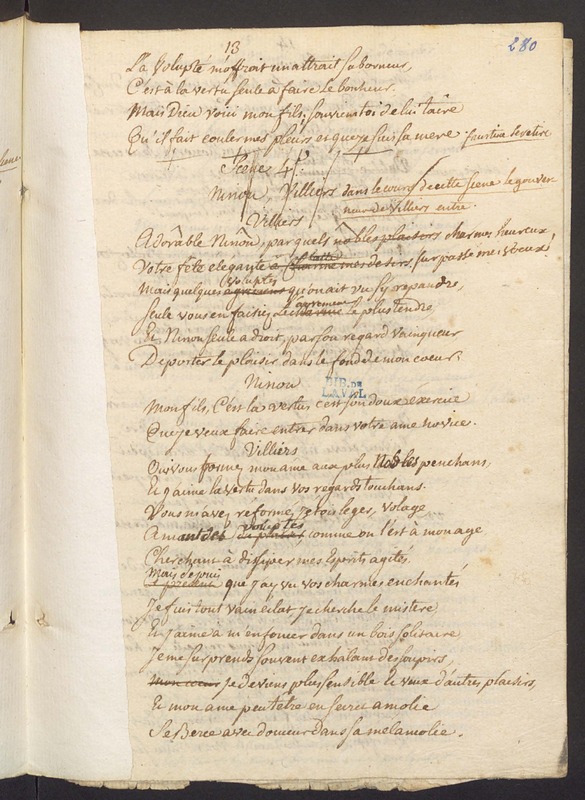 13
280
La Volupté m'offroit un attrait suborneur,
C'est à la vertu seule à faire le bonheur.
Mais Dieu voici mon fils; souviens toi de lui taire
Qu'il fait couler mes pleurs et que je suis sa mere faustine se retire
Scene 4e.
Ninon, Villiers dans le cours de cette scene le gouver
neur de Villiers entre.
Villiers
Adorable Ninon, par quels nobles plaisirs charmes heureux,
Votre fête elegante a flatté mes desirs, surpassé mes voeux
Mais quelques voluptés qu'on ait vu s'y repandre,
Seule vous en faisiez l'agrement le plus tendre,
Et Ninon seule a droit, par son regard vainqueur
De porter le plaisir dans le fond de mon coeur.
Ninon
BIB. DE
LAVAL
Mon fils, C'est la vertu c'est son doux exercice
Que je veux faire entrer dans votre ame novice.
Villiers
Oui vous formez mon ame aux plus Nobles penchans,
Et j'aime la vertu dans vos regards touchans.
Vous m'avez reformé, j'etois leger, volage
Amant des voluptés comme on l'est à mon age
Cherchant à dissiper mes Esprits agités
Mais depuis que j'ay vu vos charmes enchantés
Je fuis tout vain eclat je cherche le mistere
Et j'aime à m'enfoncer dans un bois solitaire
Je me surprends souvent exhalant des soupirs,
Mon coeur Je deviens plus sensible et veux d'autres plaisirs,
Et mon ame peutetre en secret amolie
Se Berce avec douceur dans sa melancolie.